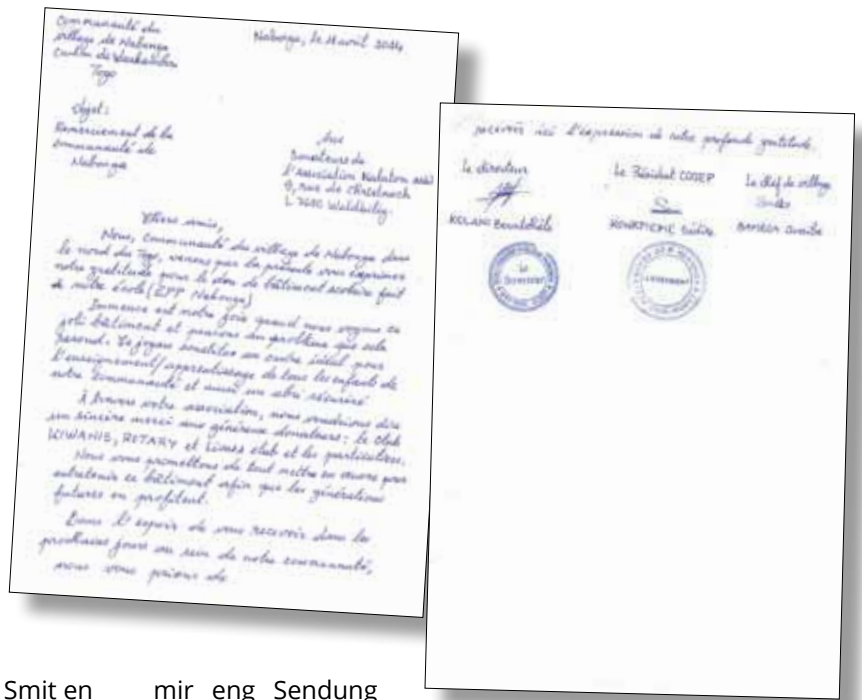 Communauté du
village de Nabonga
Canton de
Togo
Nabonga, le avril
Objet:
Remerciement de la
communauté de
Nabonga
Aux
Donateurs de
l'Association
9, rue de
L 7680 Waldbillig
Chers amis,
Nous, communauté du village de Nabonga dans
le nord du Togo, venons par la présente vous exprimer
notre gratitude pour le don de bâtiment scolaire fait
à notre école (EPP Nabonga)
Immense est notre joie quand nous voyons ce
joli bâtiment et pensons au problème que cela
résoud. Ce joyau constitue un cadre idéal pour
l'enseignement/apprentissage de tous les enfants de
notre communauté et aussi un abri sécurisé
À travers votre association, nous voudrions dire
un sincère merci aux généreux donateurs: le Club
KIWANIS, ROTARY et Lions club et les particuliers.
Nous vous promettons de tout mettre en œuvre pour
entretenir ce bâtiment afin que les générations
futures en profitent.
Dans l'espoir de vous recevoir dans les
prochains jours au sein de notre communauté,
nous vous prions de
recevoir ici l'expression de notre profonde gratitude.
Le directeur Le Président COGEP Le chef de village
KOLANI
Le
Directeur
Smit en mir eng Sendung